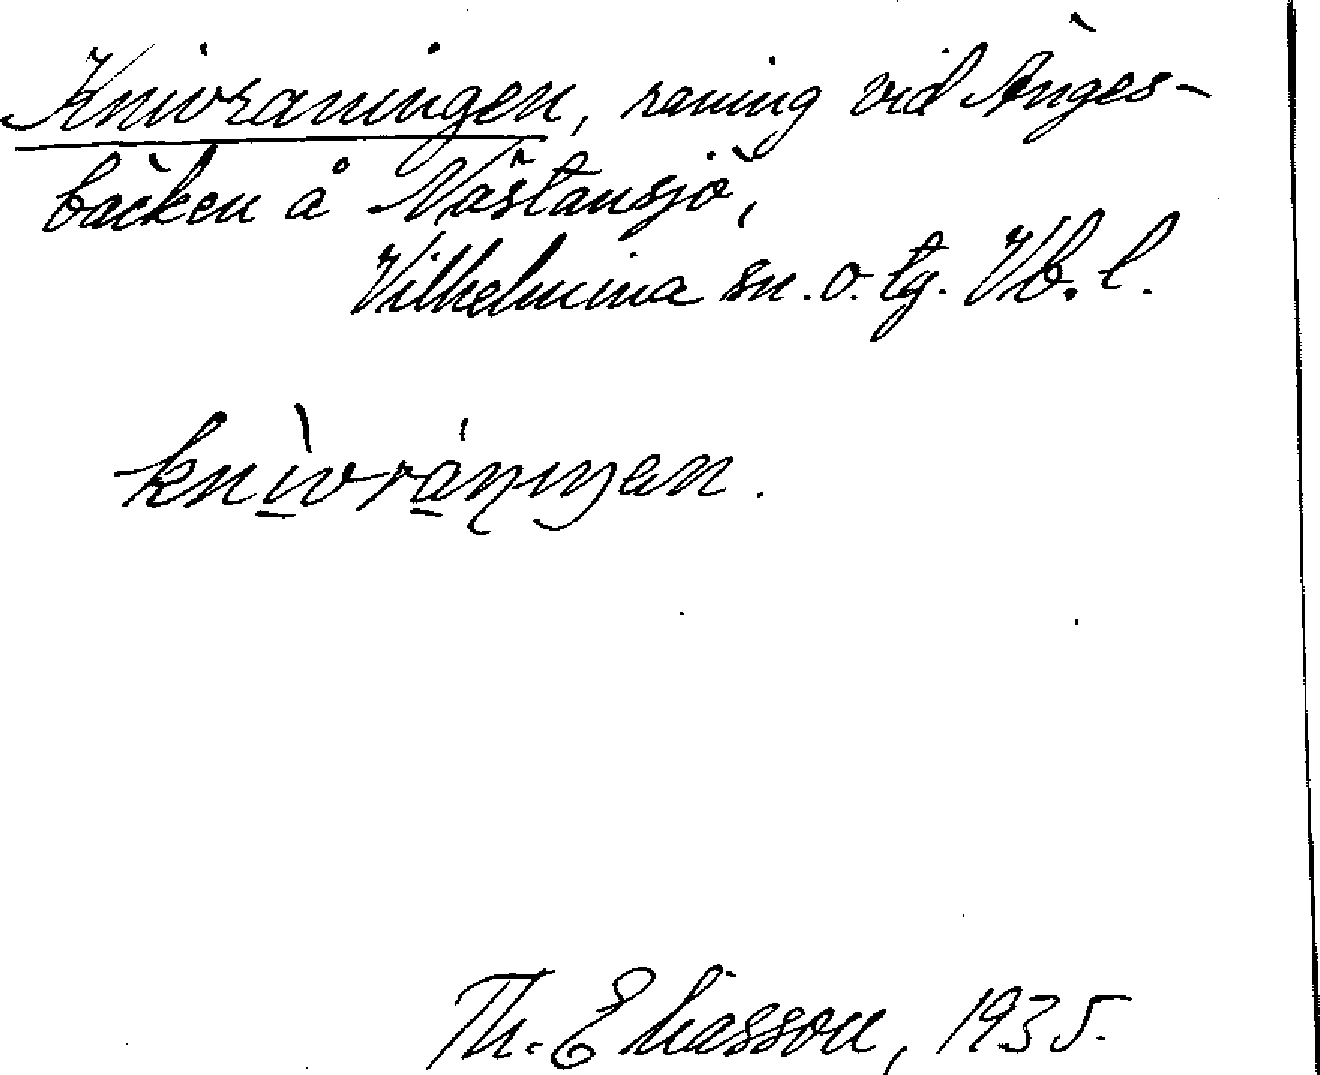 Knivraningen, raning vid Änges-
bäcken å Nästansjö,
Vilhelmina sn. o. tg. Vb. l.
knìvránıŋen.
Th. Eliasson, 1935.